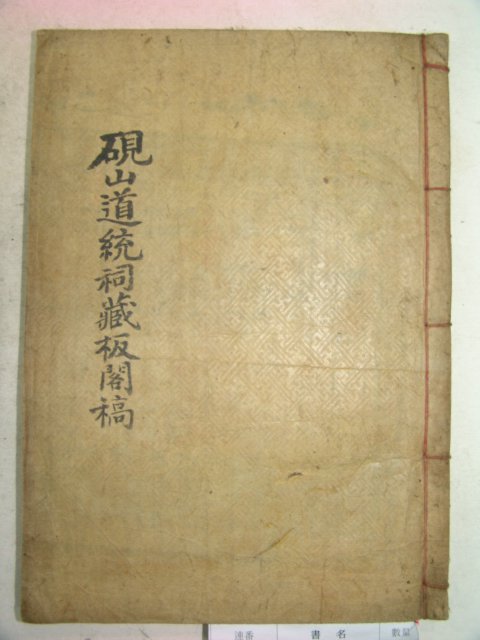 硯山道統祠藏板閣稿
連番 書名 數量